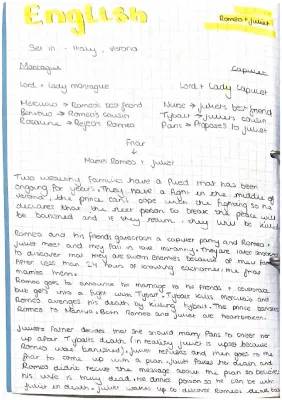 English
Romeo + Juliet
Set in - Italy, Verona
Montague Capulet
Lord + Lady montague Lord + Lady Capulet
Mercutio → Romeo's best friend Nurse → Juliet's best friend
Benvolio → Romeo's cousin Tybalt → Juliet's cousin
Rosaline → Rejects Romeo Paris → Proposes to Juliet
Friar
↓
Marries Romeo + Juliet
Two wealthy families have a feud that has been
ongoing for years. They have a fight in the middle of
verona, the prince can't cope with the fighting so he
declares that the next person to break the peace will
be banished and if they return, they will be killed
Romeo and his friends gatecrash a capulet party and Romeo +
Juliet meet and they fall in love instantly. They are later shocked
to discover that they are sworn enemies because of their families
After less than 24 hours of knowing eachother the friar
marries them.
Romeo goes to announce his marriage to his friends + Benvolio
but gets into a fight with Tybalt. Tybalt kills Mercutio and
Romeo avenges his death by killing tybalt. The prince banishes
Romeo to Mantua. Both Romeo and Juliet are heartbroken.
Juliet's Father decides that she should marry Paris to cheer her
up after Tybalt's death (in reality Juliet is upset because
Romeo was banished). Juliet refuses and then goes to the
friar to come up with a plan. Juliet fakes her death and
Romeo didn't recieve the message about the plan so believes
his wife is truly dead. He drinks poison so he can be with
Juliet in death. Juliet wakes up to discover Romeo dead